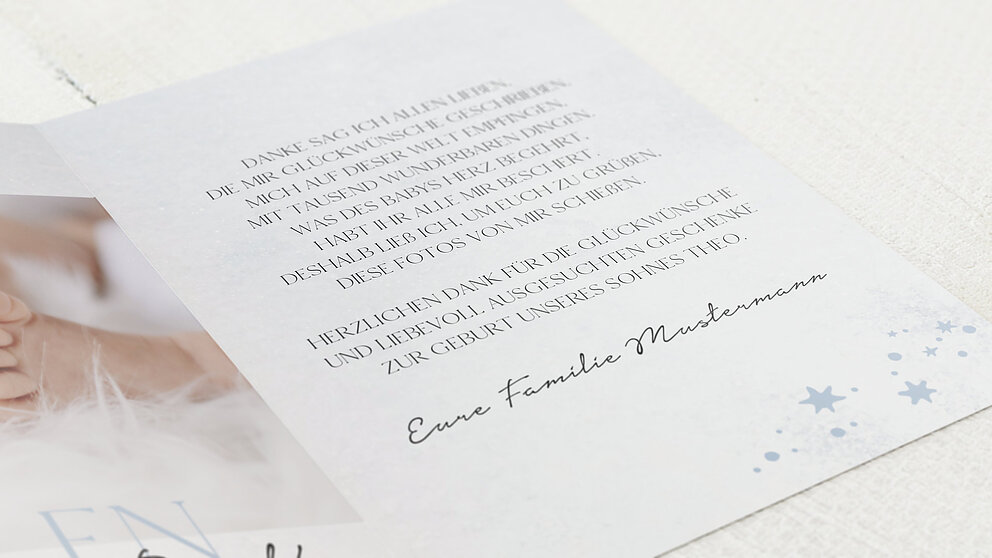 DANKE SAG ICH ALLEN LIEBEN,
DIE MIR GLÜCKWÜNSCHE GESCHRIEBEN,
MICH AUF DIESER WELT EMPFINGEN,
MIT TAUSEND WUNDERBAREN DINGEN.
WAS DES BABYS HERZ BEGEHRT,
HABT IHR ALLE MIR BESCHERT.
DESHALB LIEẞ ICH, UM EUCH ZU GRÜẞEN,
DIESE FOTOS VON MIR SCHIEẞEN.
HERZLICHEN DANK FÜR DIE GLÜCKWÜNSCHE
UND LIEBEVOLL AUSGESUCHTEN GESCHENKE
ZUR GEBURT UNSERES SOHNES THEO.
Eure Familie Mustermann
EN